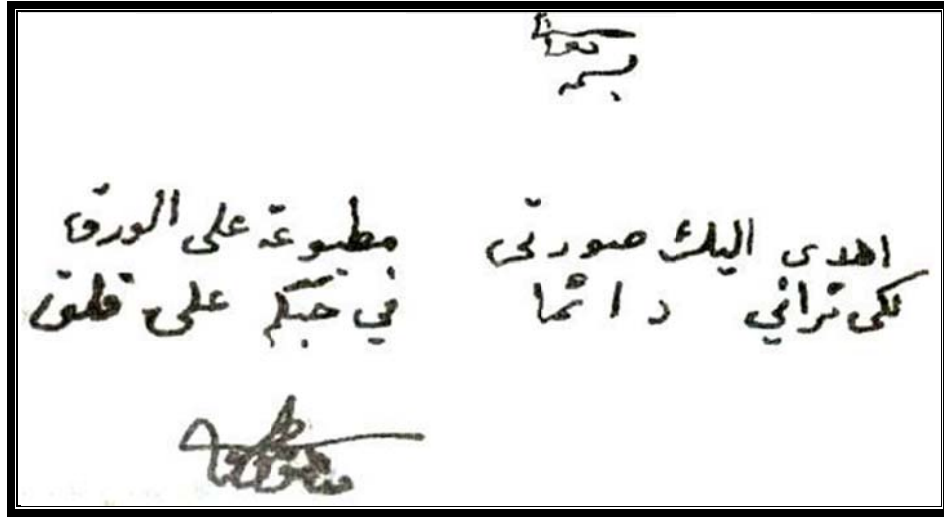 بسمه تعالى
اهدى اليك صورتى مطبوعة على الورق
لكى تراني دائما في حبكم على قلق